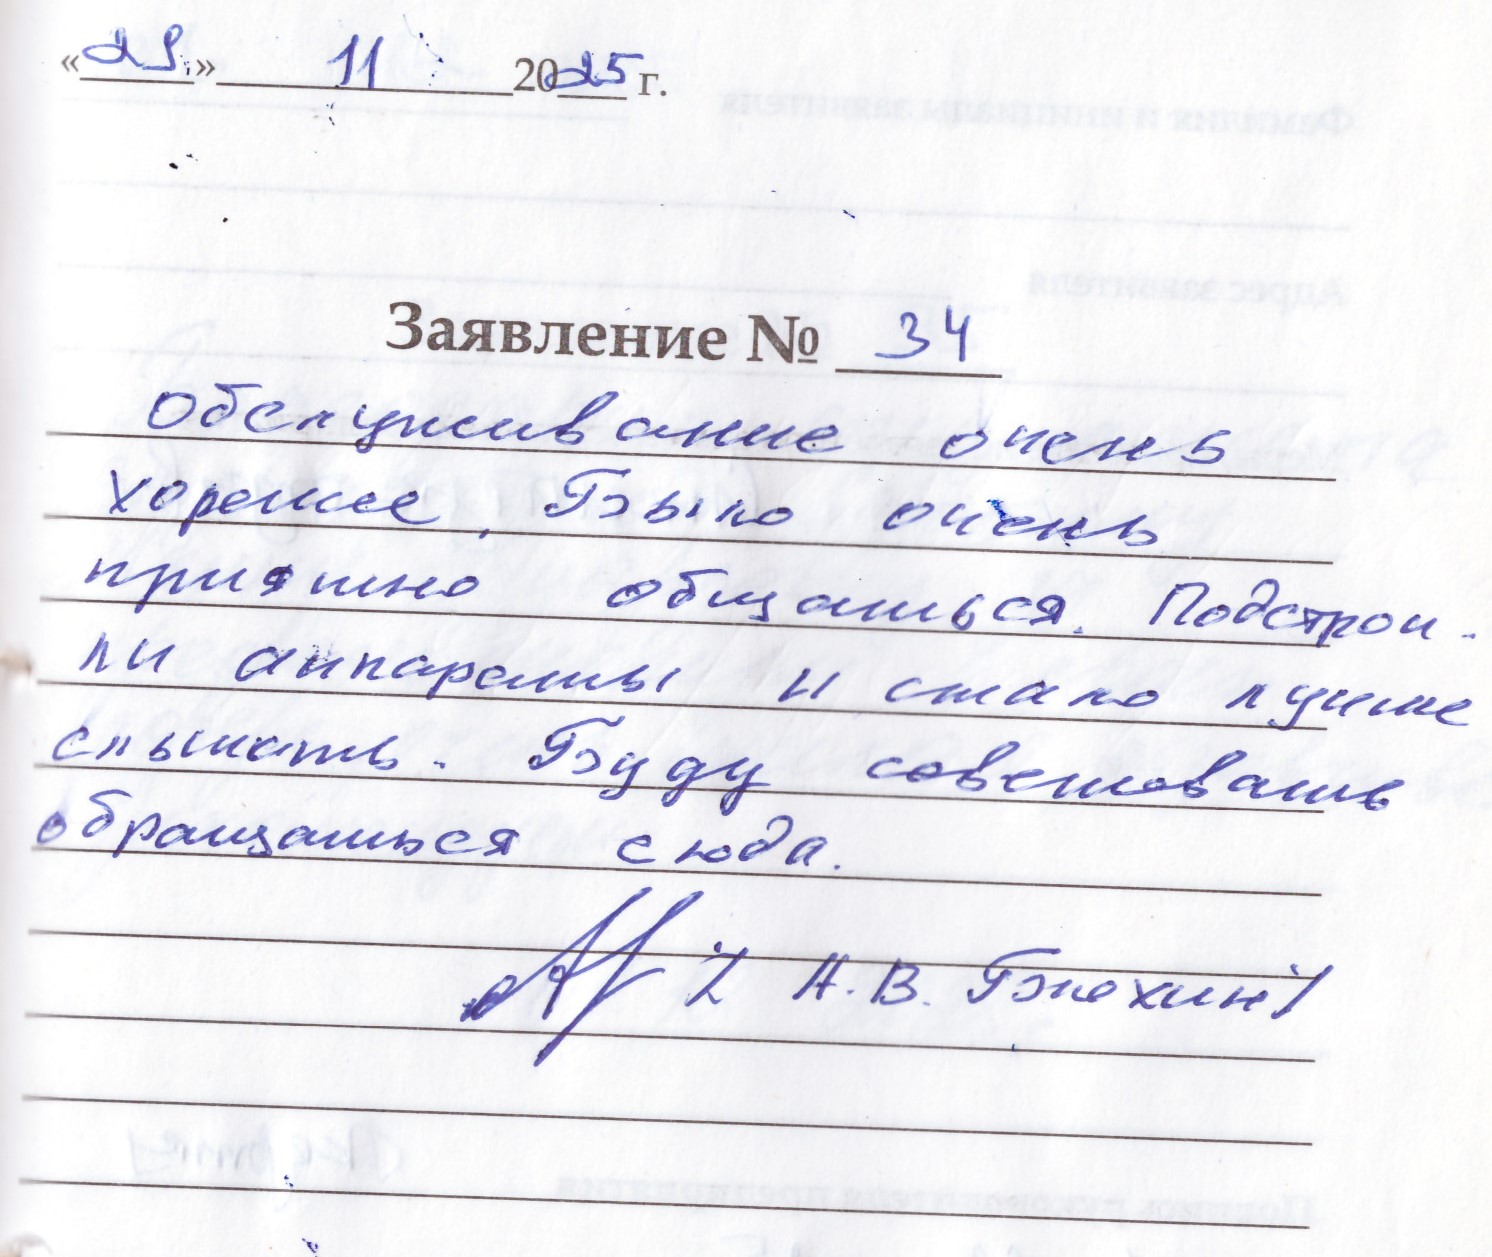 «29» 11 2025 г.
Заявление № 34
Обслуживание очень
хорошее. Было очень
приятно общаться. Подстрои-
ли аппараты и стало лучше
слышать. Буду советовать
обращаться сюда.
/ А.В. Блохин /